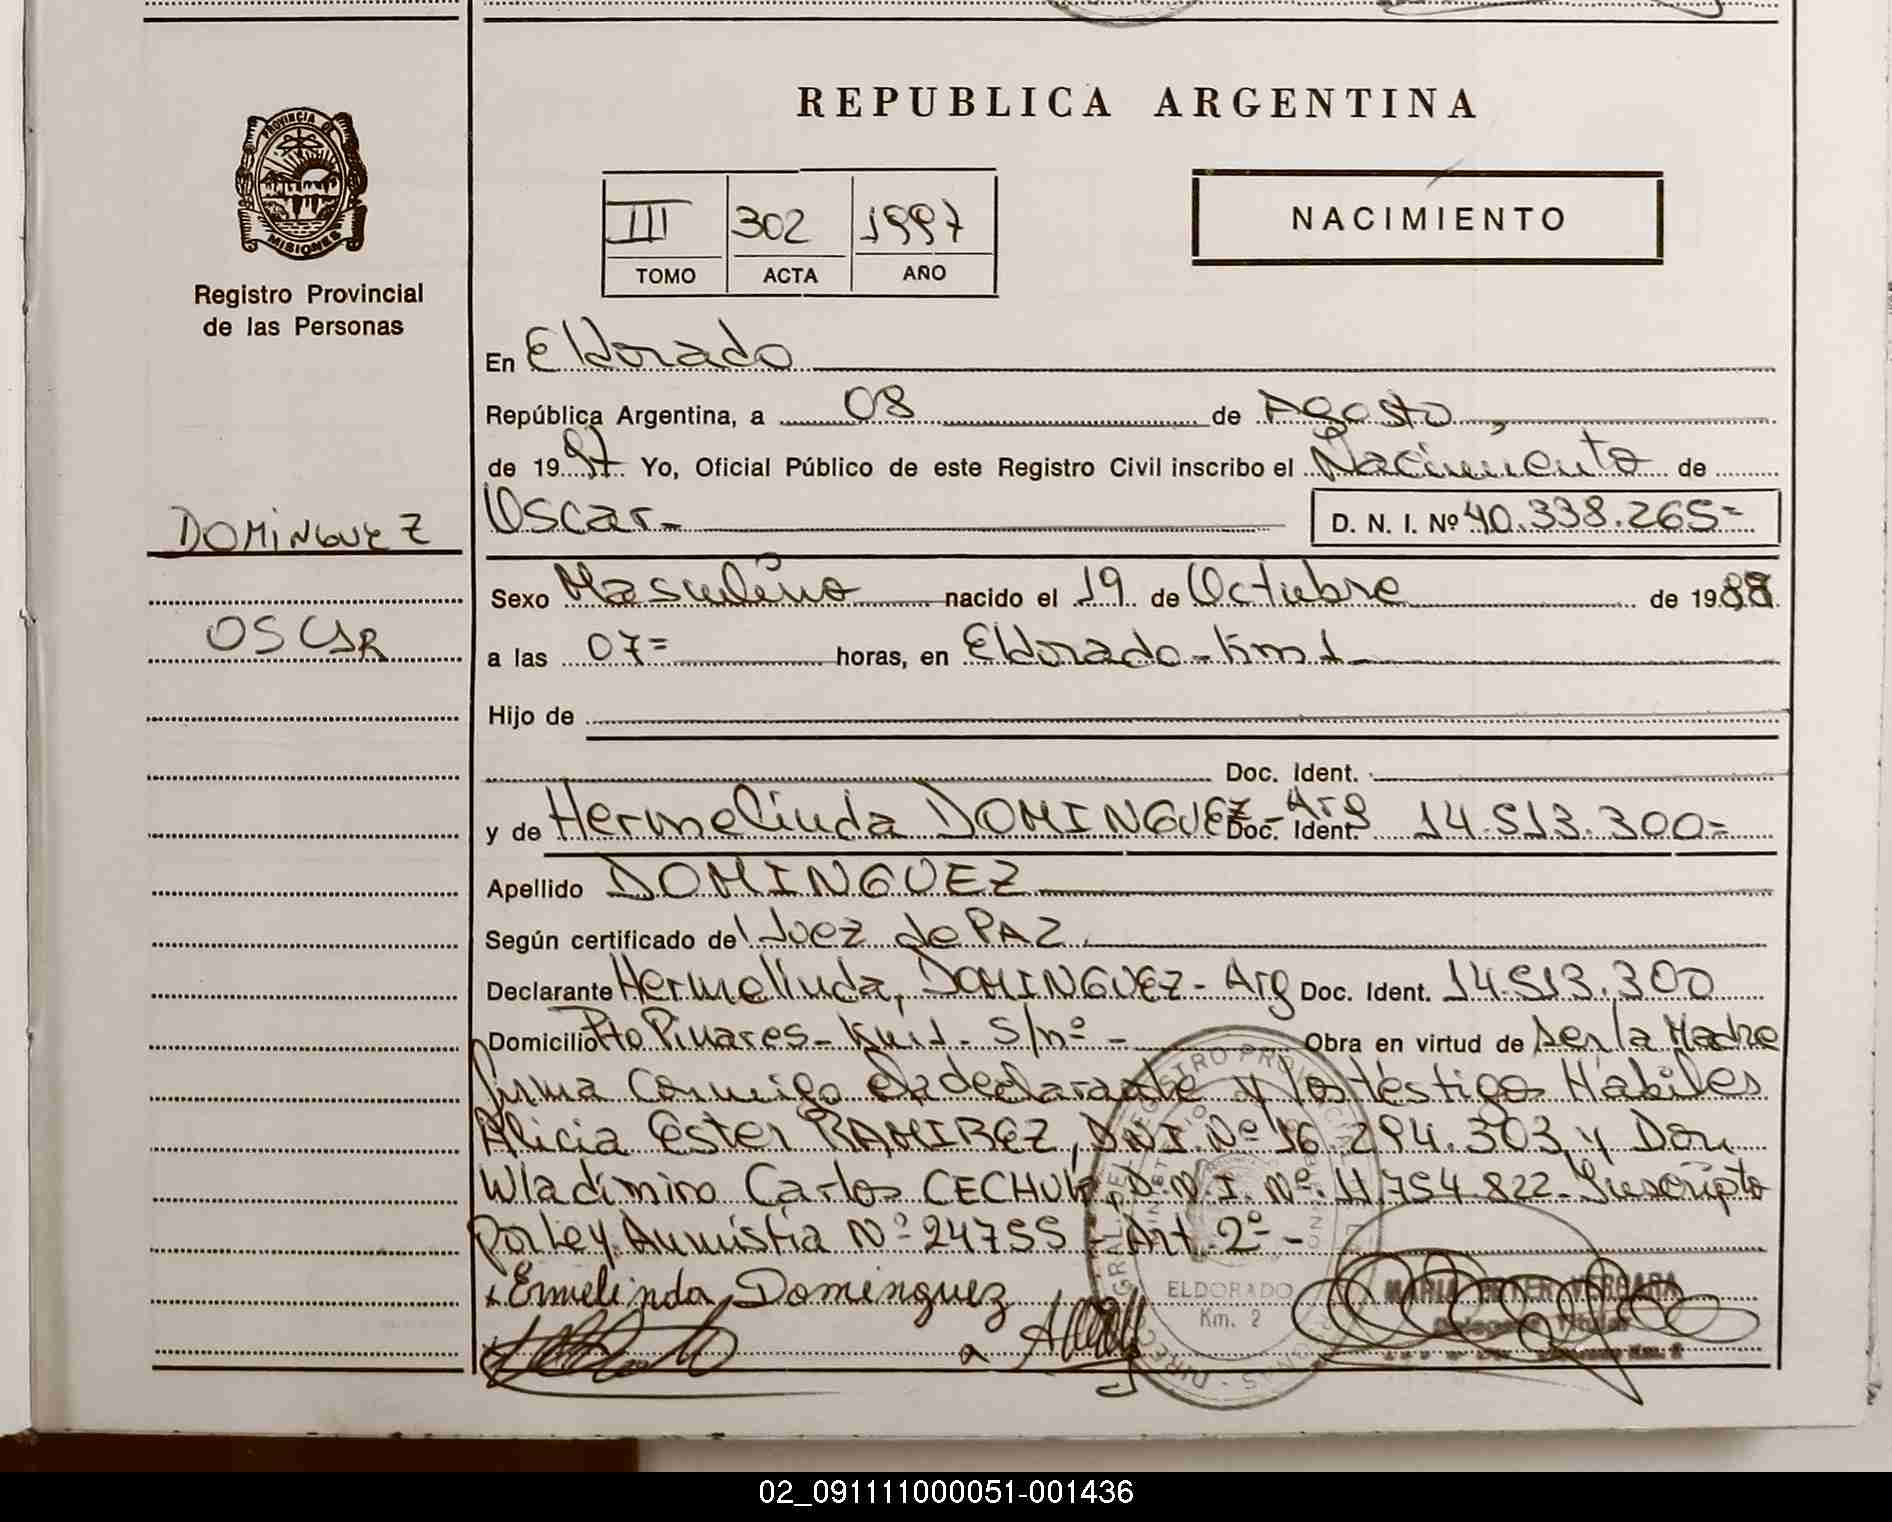 REPUBLICA ARGENTINA
PROVINCIA DE
MISIONES
Registro Provincial
de las Personas
III 302 1997
TOMO ACTA AÑO
NACIMIENTO
En Eldorado
República Argentina, a 08 de Agosto,
de 1997 Yo, Oficial Público de este Registro Civil inscribo el Nacimiento de
DOMINGUEZ
Oscar- D. N. I. Nº 40.338.265=
Sexo Masculino nacido el 19 de Octubre de 1988
OSCAR
a las 07= horas, en Eldorado-Km 1-
Hijo de
Doc. Ident.
y de Hermelinda DOMINGUEZ-Arg Doc. Ident. 14.513.300=
Apellido DOMINGUEZ
Según certificado de Juez de PAZ
Declarante Hermelinda, DOMINGUEZ- Arg Doc. Ident. 14.513.300
Domicilio Pto Pinares- Km 1- S/nº - Obra en virtud de Ser la Madre
firma conmigo la declarante y los testigos Habiles
Alicia Ester RAMIREZ, DNI. Nº 16.294.303 y Don
Wladimiro Carlos D.N.I. Nº. 11.754.822- Inscripto
por Ley Amnistia Nº 24755 - Art. 2º -
Ermelinda Dominguez
ELDORADO
Km. 2
VERGARA
Titular
02_091111000051-001436